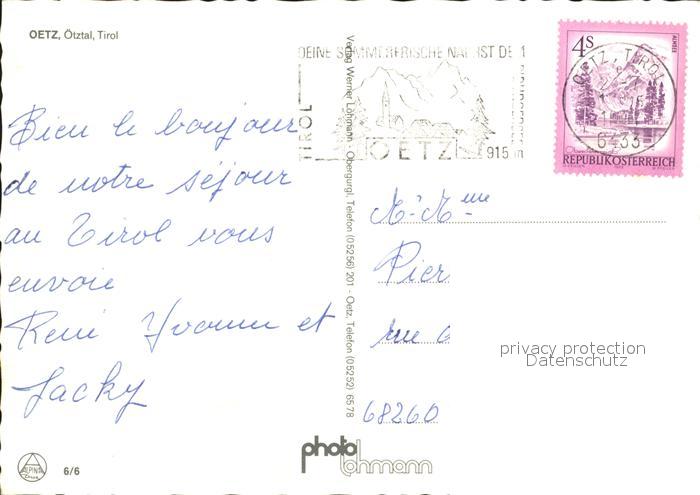 OETZ, Ötztal, Tirol
Bien le bonjour
de notre séjour
au Tirol vous
envoie
René Yvonne et
Jacky
ALPINA
6/6
Verlag Werner Lohmann · Obergurgl, Telefon (05256) 201 · Oetz, Telefon (05252) 6578
TIROL
OETZ
915 m
4S
ALMSEE
REPUBLIK ÖSTERREICH
OETZ, TIROL
6433
M. Mme
Pier
rue
68260
privacy protection
Datenschutz
photo
lohmann